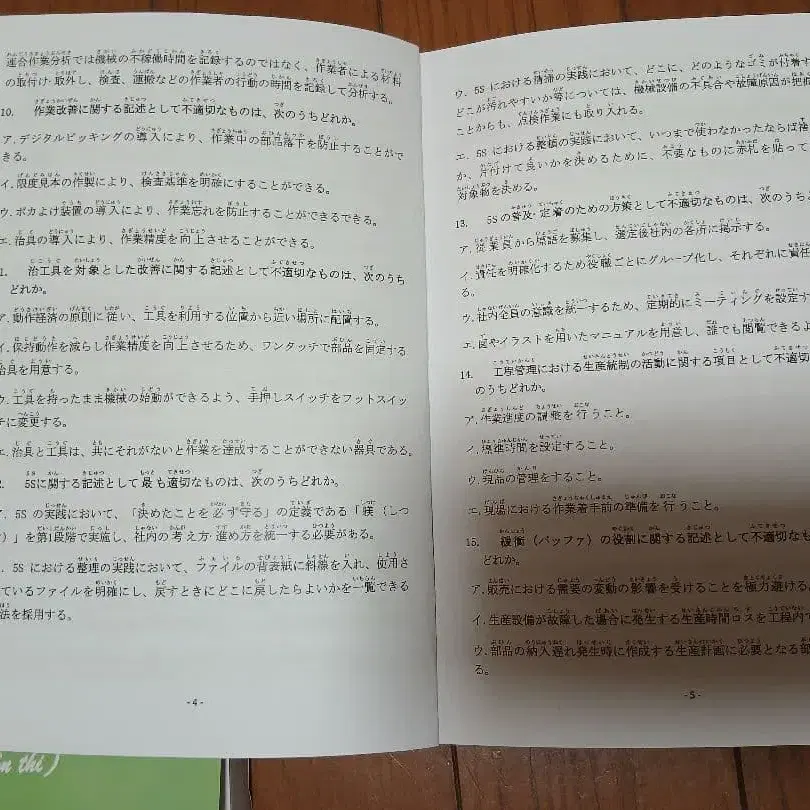 連合作業分析では機械の不稼働時間を記録するのではなく、作業者による材料
の取付け・取外し、検査、運搬などの作業者の行動の時間を記録して分析する。
10. 作業改善に関する記述として不適切なものは、次のうちどれか。
ア.デジタルピッキングの導入により、作業中の部品落下を防止することがで
きる。
イ.限度見本の作製により、検査基準を明確にすることができる。
ウ.ポカよけ装置の導入により、作業忘れを防止することができるできる。
エ.治具の導入により、作業精度を向上させることができる。
1. 治工具を対象とした改善に関する記述として不適切なものは、次のうち
どれか。
ア.動作経済の原則に従い、工具を利用する位置から近い場所に配置する。
イ.保持動作を減らし作業精度を向上させるため、ワンタッチで部品を固定する
治具を用意する。
ウ.工具を持ったまま機械の始動ができるよう、手押しスイッチをフットスイッ
チに変更する。
エ.治具と工具は、共にそれがないと作業を達成することができない器具である。
2. 5Sに関する記述として最も適切なものは、次のうちどれか。
ア. 5S の実践において、「決めたことを必ず守る」の定義である「躾（しつ
）」を第1段階で実施し、社内の考え方・進め方を統一する必要がある。
イ. 5S における整理の実践において、ファイルの背表紙に斜線を入れ、使用さ
ているファイルを明確にし、戻すときにどこに戻したらよいかを一覧できる
法を採用する。
- 4 -
ウ. 5S における清掃の実践において、どこに、どのようなゴミが付着す
どこが汚れやすいか等については、機械設備の不具合や故障原因が把
ことからも、点検作業にも取り入れる。
エ. 5S における整頓の実践において、いつまで使わなかったならば
か、片付けて良いかを決めるために、不要なものに赤札を貼って
対象物を決める。
13. 5S の普及・定着のための方策として不適切なものは、次のうち
ア.従業員から標語を募集し、選定後社内の各所に掲示する。
イ.責任を明確化するため役職ごとにグループ化し、それぞれに責任
る。
ウ.社内全員の意識を統一するため、定期的にミーティングを設定す
エ.図やイラストを用いたマニュアルを用意し、誰でも閲覧できるよ
14. 工程管理における生産統制の活動に関する項目として不適切
のうちどれか。
ア.作業進度の調整を行うこと。
イ.標準時間を設定すること。
ウ.現品の管理をすること。
エ.現場における作業着手前の準備を行うこと。
15. 緩衝（バッファ）の役割に関する記述として不適切なも
どれか。
ア.販売における需要の変動の影響を受けることを極力避ける。
イ.生産設備が故障した場合に発生する生産時間ロスを工程内で
ウ.部品の納入遅れ発生時に作成する生産計画に必要となる部
る。
- 5 -
in thi)